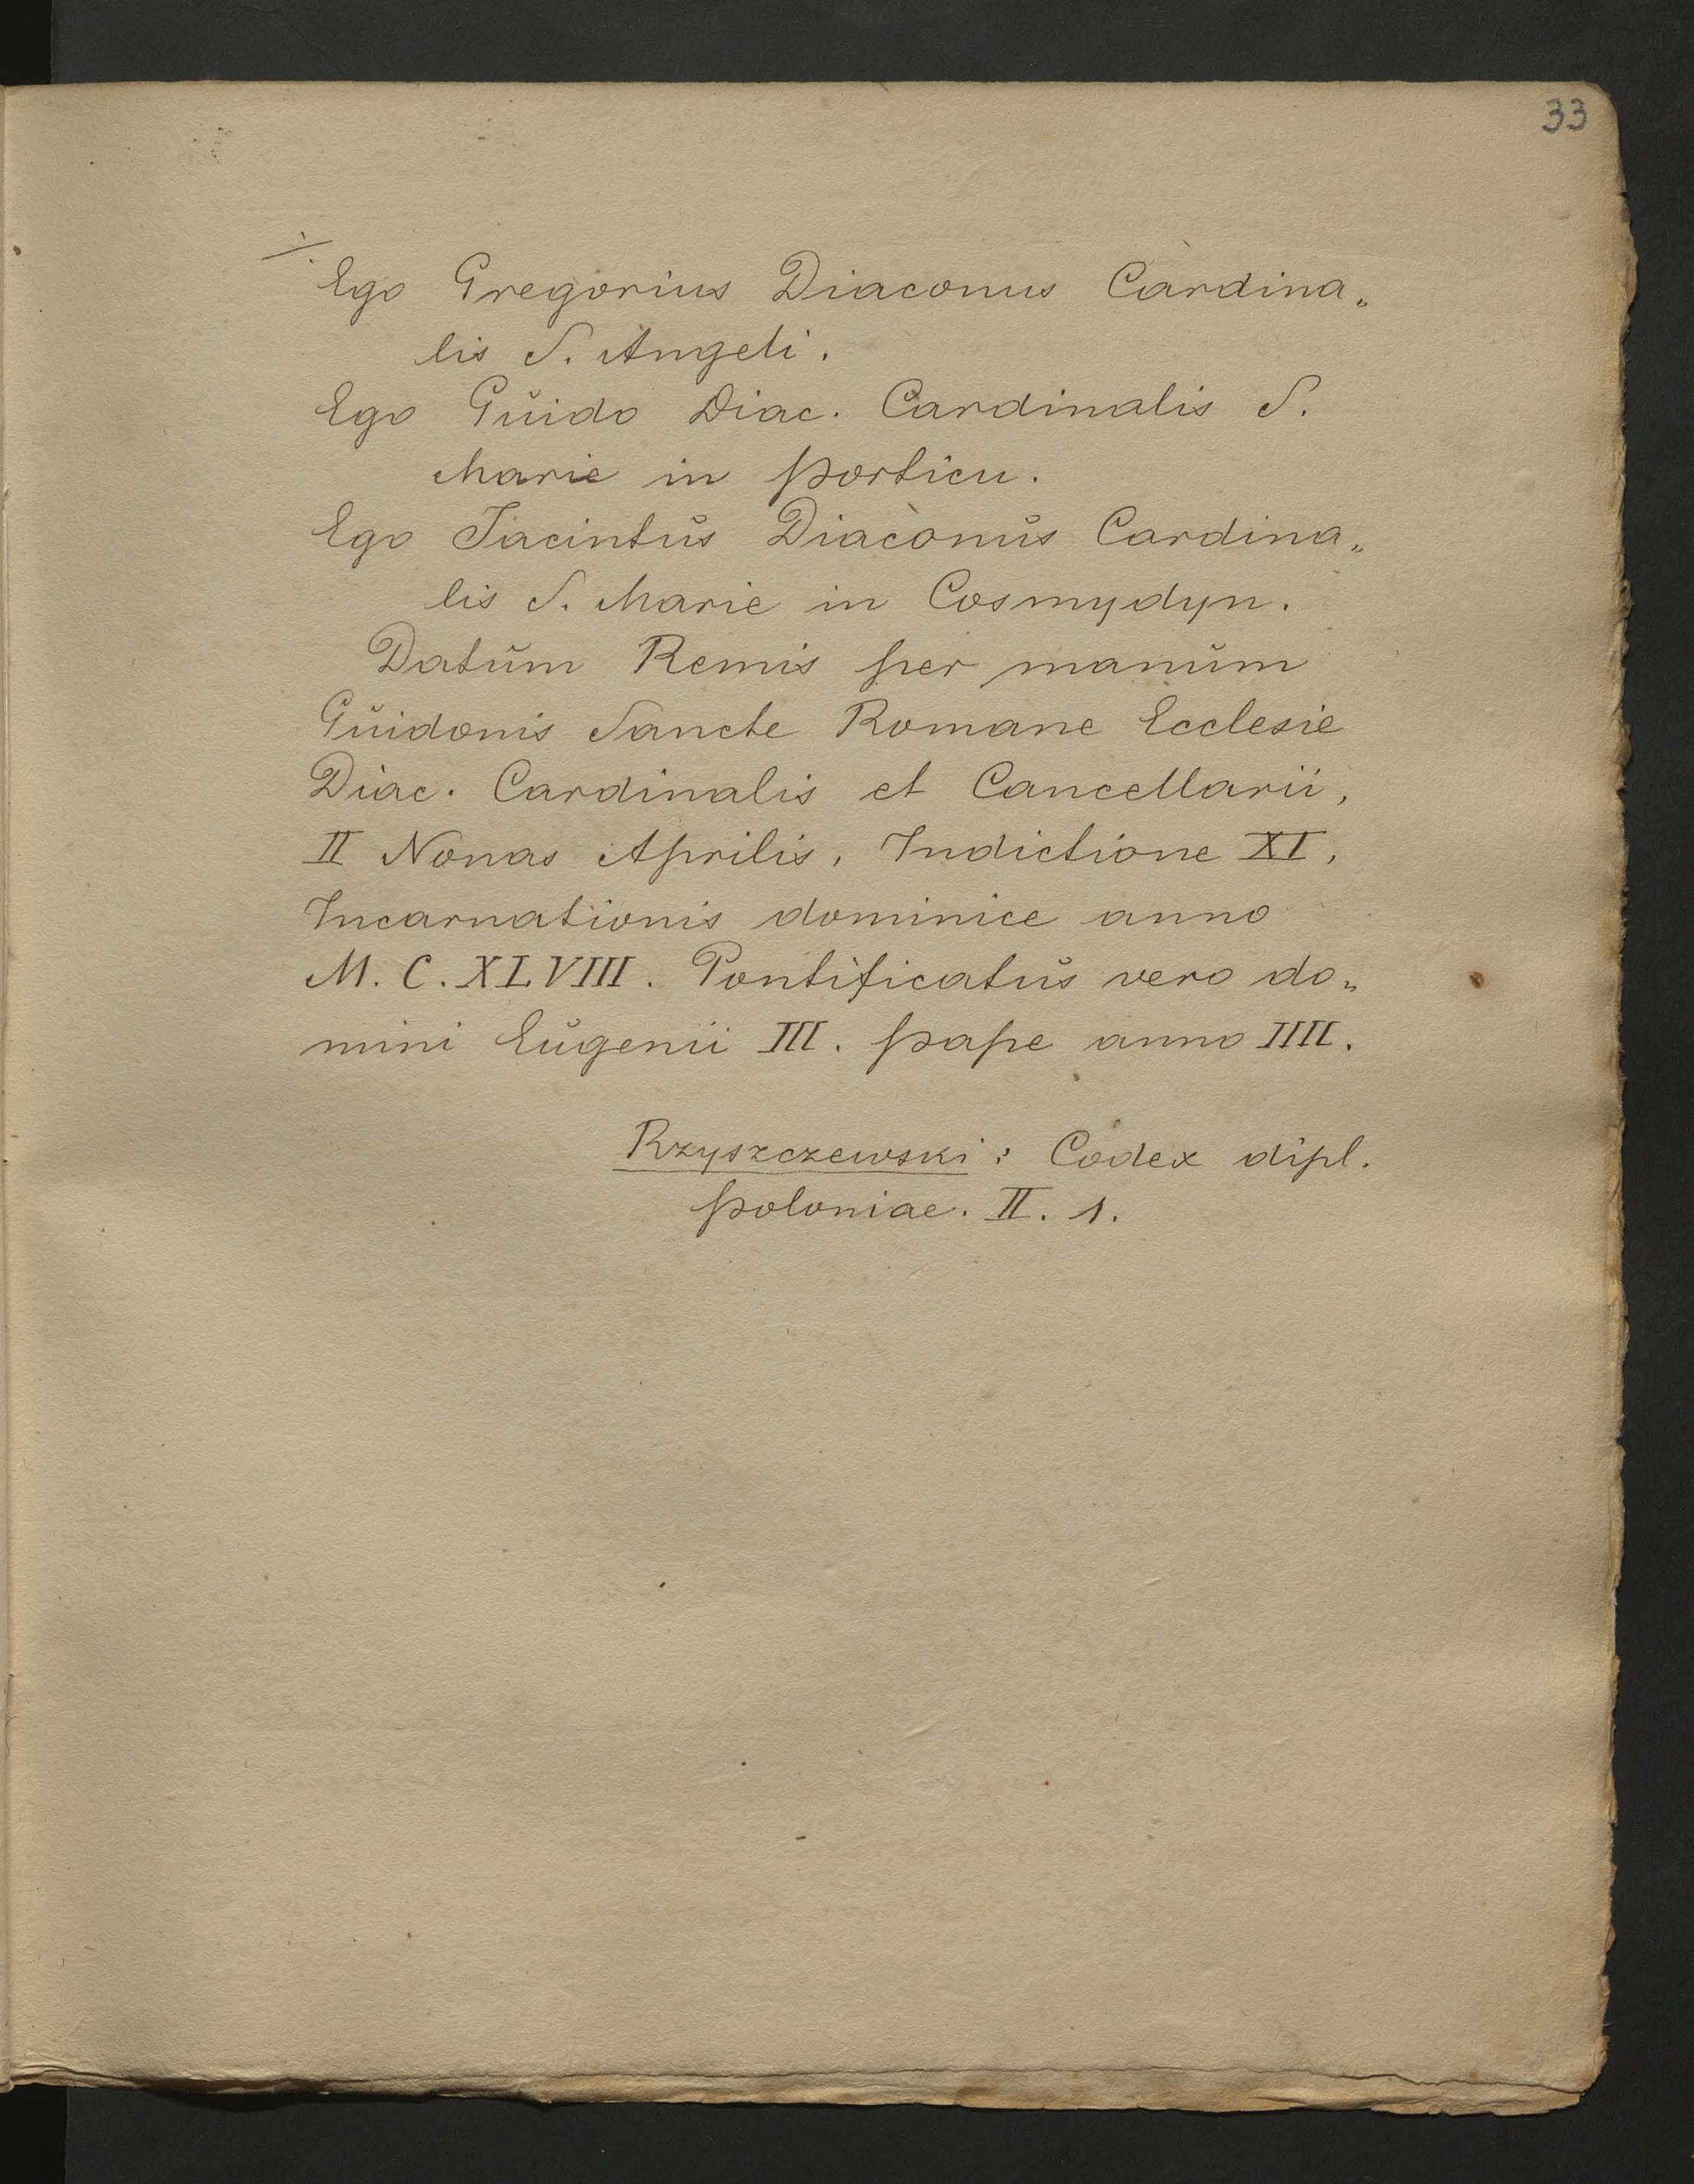 33
./.
Ego Gregorius Diaconus Cardina„
lis S. Angeli.
Ego Guido Diac. Cardinalis S.
Marie in porticu.
Ego Jacintus Diaconus Cardina„
lis S. Marie in Cosmydyn.
Datum Remis per manum
Guidonis Sancte Romane Ecclesie
Diac. Cardinalis et Cancellarii,
II Nonas Aprilis, Indictione XI,
Incarnationis dominice anno
M. C. XLVIII. Pontificatus vero do„
mini Eugenii III. pape anno IIII.
Rzyszczewski: Codex dipl.
poloniae. II. 1.